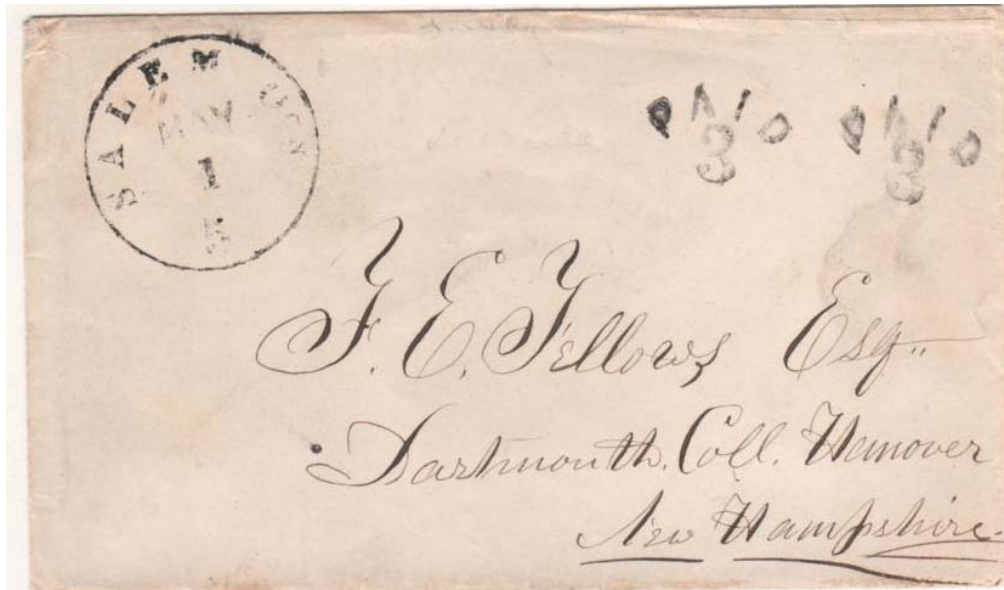 SALEM OGN
MAY
1
5
PAID
3
PAID
3
F. E. Fellows Esq.
Dartmouth. Coll. Hanover
New Hampshire.